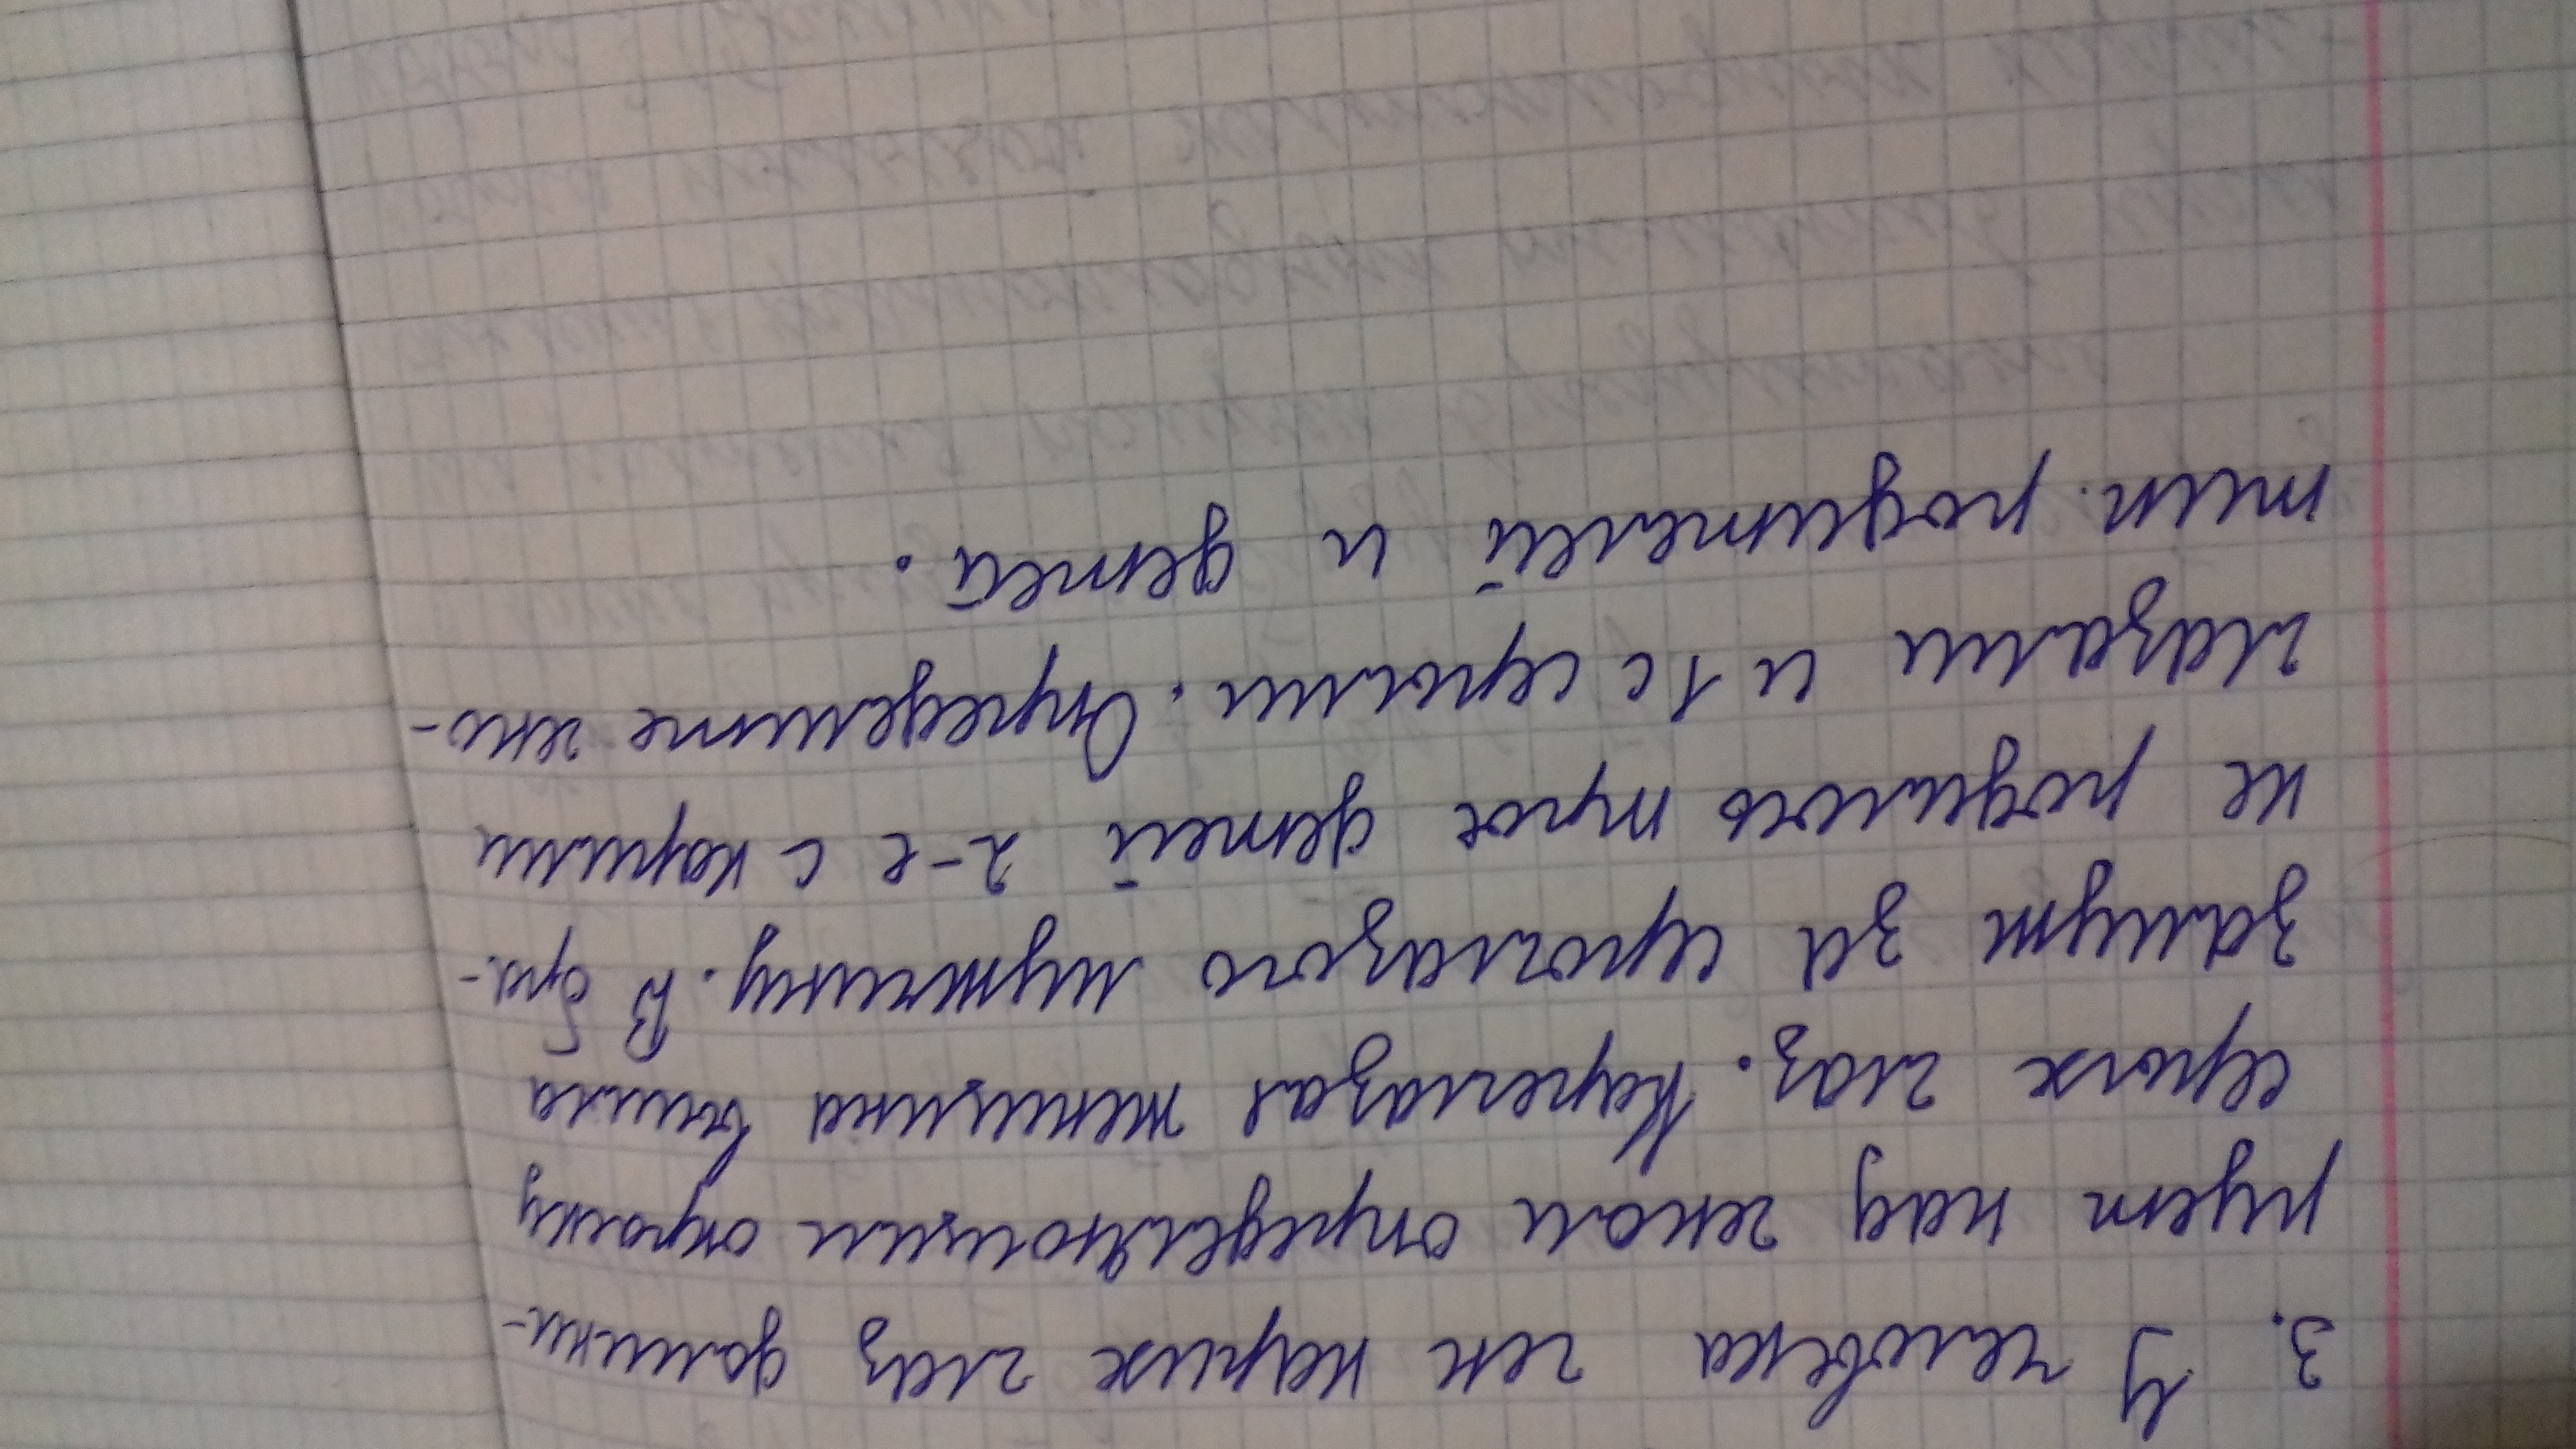 3. У человека ген карих глаз домини-
рует над геном определяющим окраску
серых глаз. Кареглазая женщина вышла
замуж за сероглазого мужчину. В бра-
ке родилось трое детей 2-е с карими
глазами и 1 с серыми. Определите гено-
тип. родителей и детей.